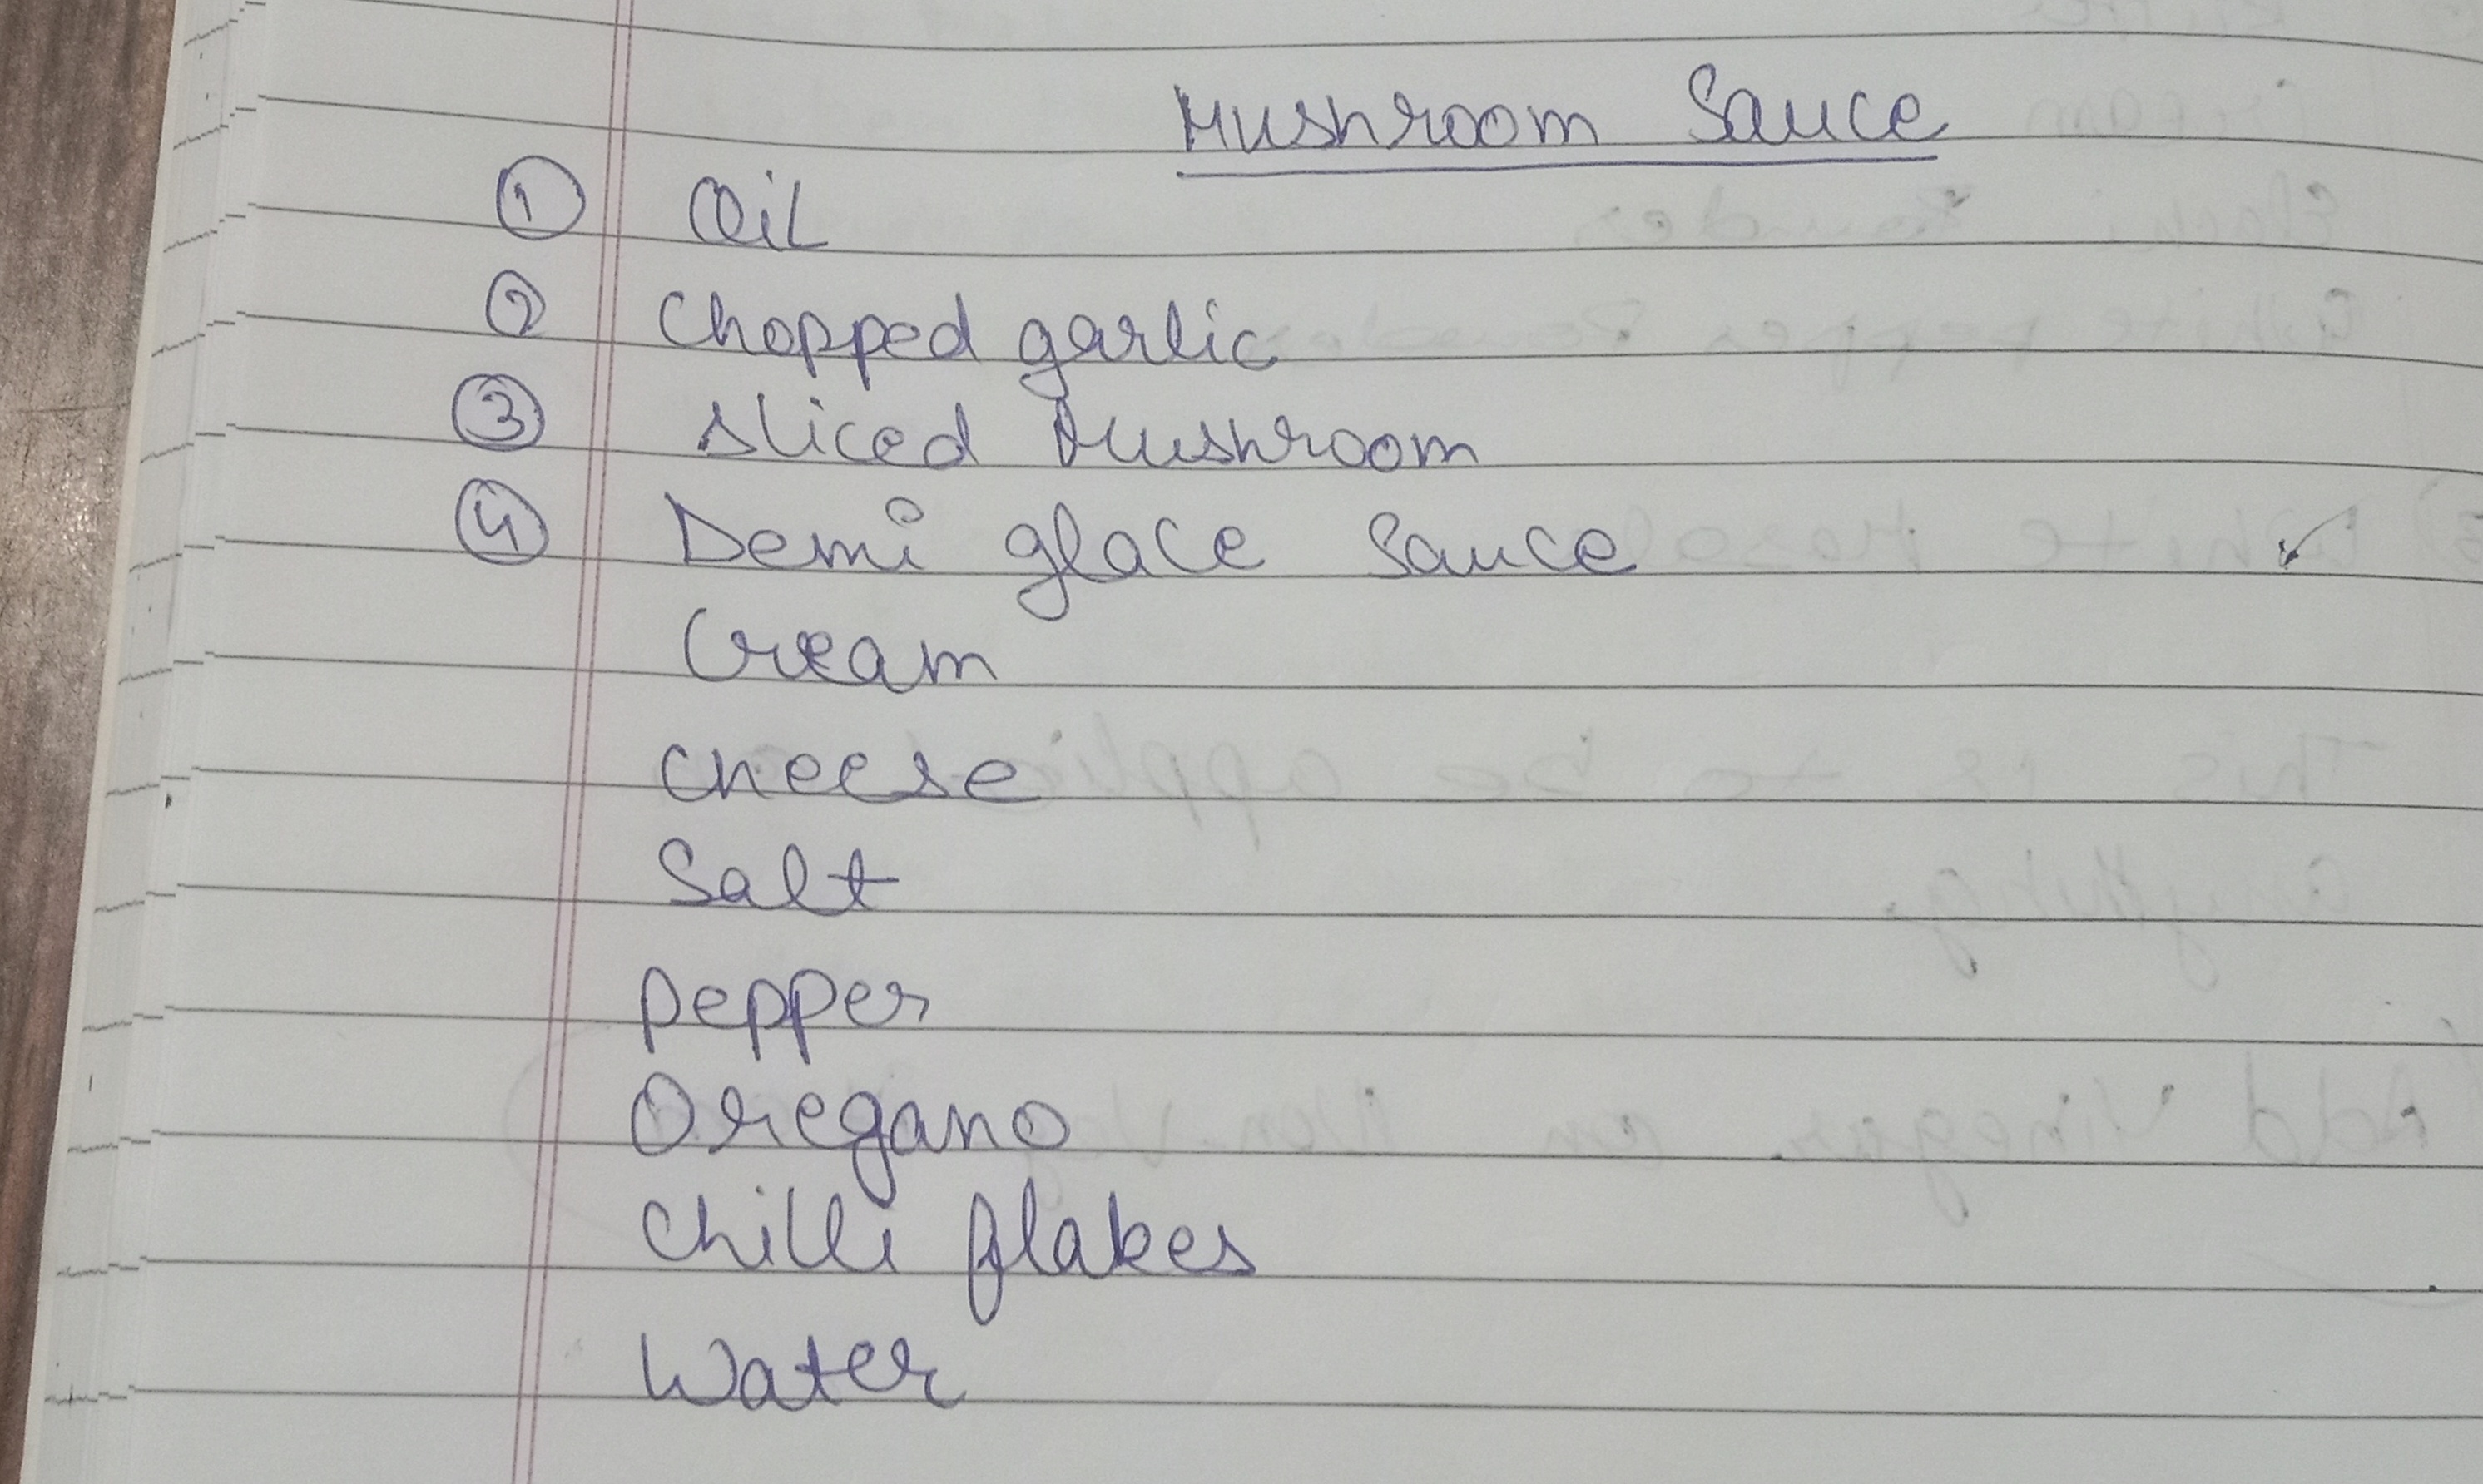 Mushroom Sauce
① Oil
② Chopped garlic
③ sliced Mushroom
④ Demi glace Sauce
Cream
cheese
Salt
pepper
Oregano
Chilli flakes
Water